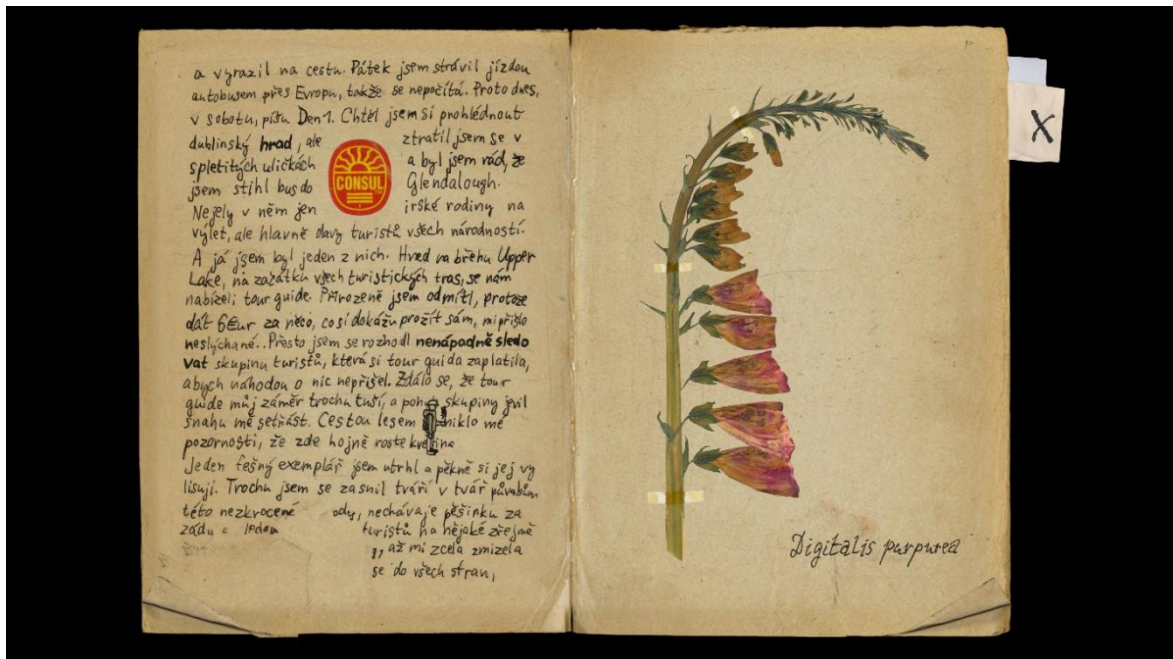 a vyrazil na cestu. Pátek jsem strávil jízdou
autobusem přes Evropu, takže se nepočítá. Proto dnes,
v sobotu, píšu Den 1. Chtěl jsem si prohlédnout
dublinský hrad, ale ztratil jsem se v
spletitých uličkách a byl jsem rád, že
jsem stihl bus do Glendalough.
Nejely v něm jen irské rodiny na
výlet, ale hlavně davy turistů všech národností.
A já jsem byl jeden z nich. Hned na břehu Upper
Lake, na začátku všech turistických tras, se nám
nabízeli tour guide. Přirozeně jsem odmítl, protože
dát 6 Eur za něco, co si dokážu prožít sám, mi přišlo
neslýchané.. Přesto jsem se rozhodl nenápadně sledo
vat skupinu turistů, která si tour guida zaplatila,
abych náhodou o nic nepřišel. Zdálo se, že tour
guide můj záměr trochu tuší, a skupiny jevil
snahu mě setřást. Cestou lesem niklo mé
pozornosti, že zde hojně roste květina
Jeden fešný exemplář jsem utrhl a pěkně si jej vy
lisuji. Trochu jsem se zasnil tváří v tvář půvabům
této nezkrocené ody, nechávaje pěšinku za
zády turistů na nějaké zřejmě
až mi zcela zmizela
se do všech stran,
CONSUL
X
Digitalis purpurea